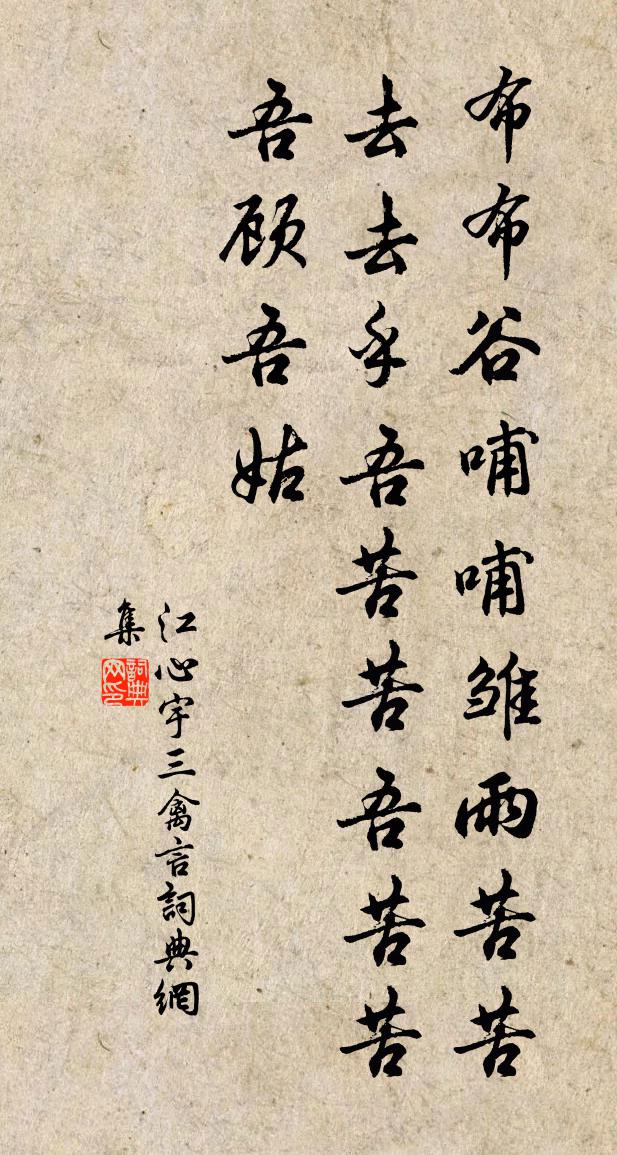 布布谷哺哺雏雨苦苦
去去乎吾苦苦吾苦苦
吾顾吾姑
江心宇三禽言詞典網
集
詞典
网印